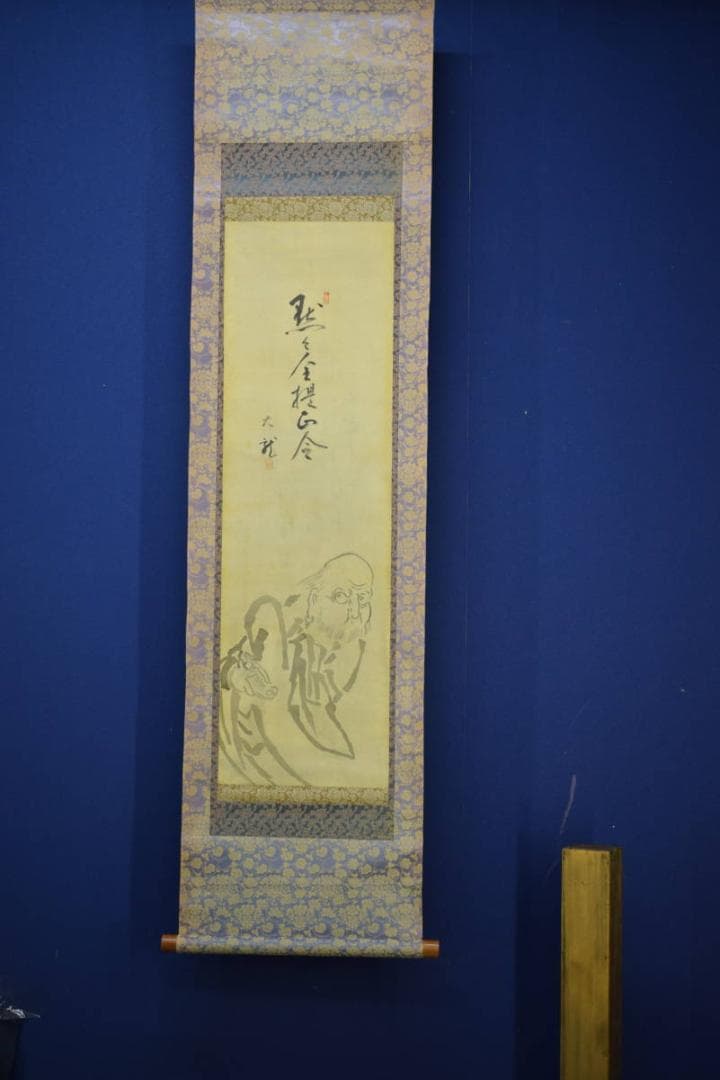 黙々全提正令
大龍